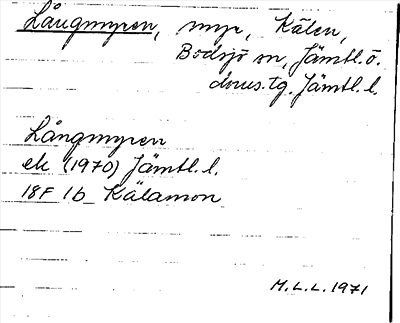 Långmyren, myr, Kälen,
Bodsjö sn, Jämtl. ö.
doms. tg. Jämtl. l.
Långmyren
ek (1970) Jämtl. l.
18F 1b Kälamon
M.L.L. 1971